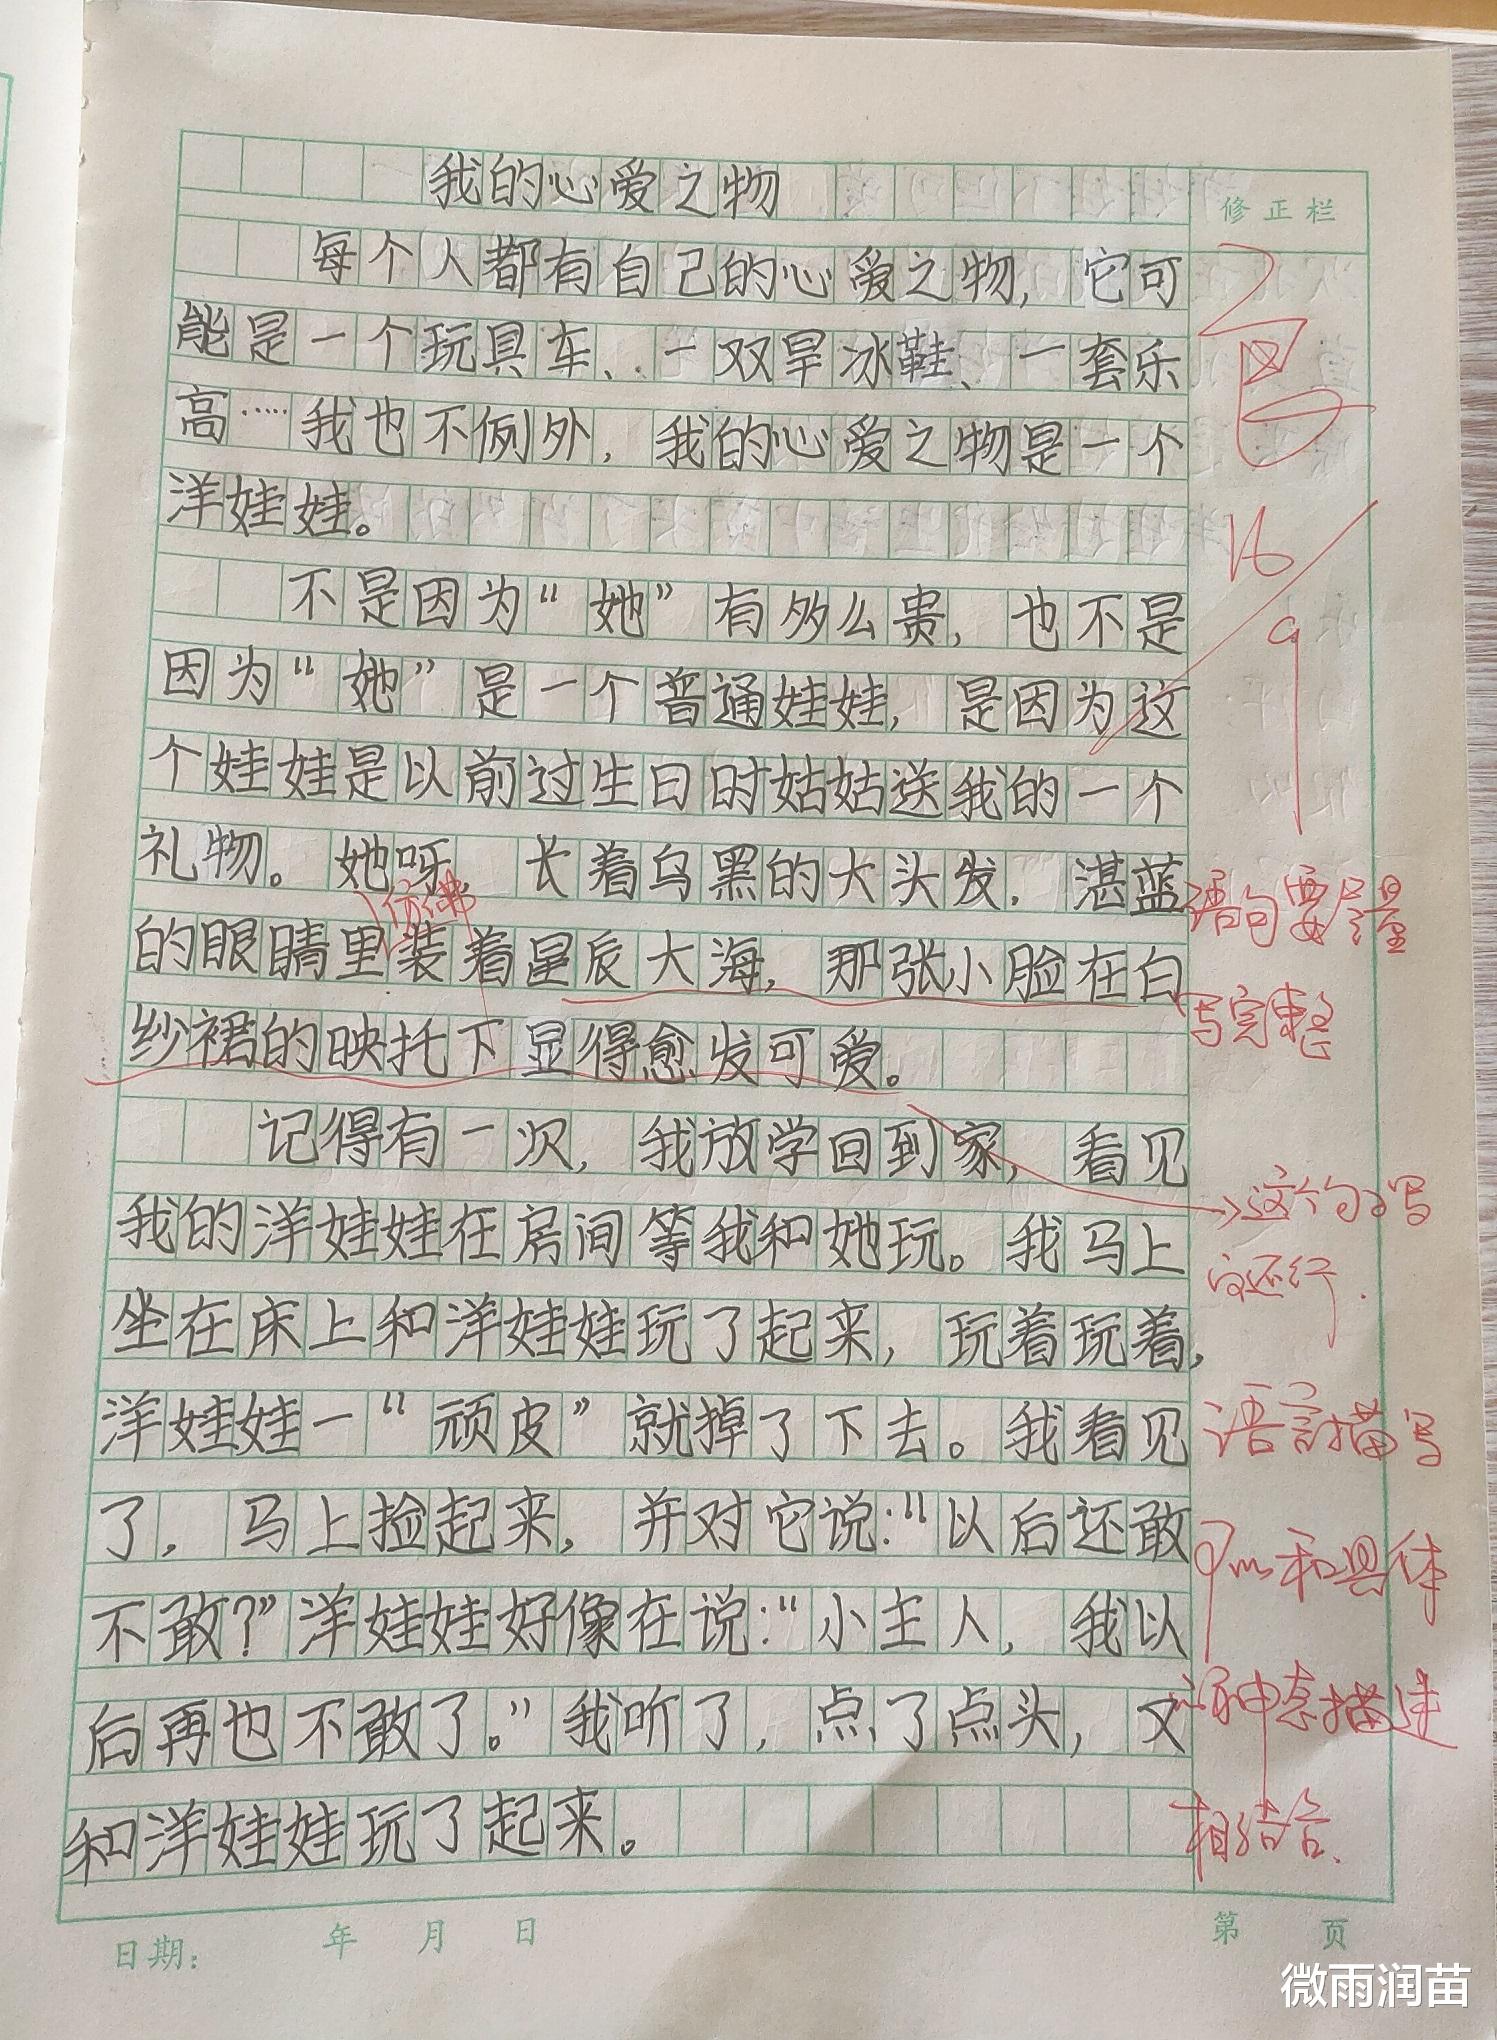 我的心爱之物
修正栏
每个人都有自己的心爱之物，它可
能是一个玩具车、一双旱冰鞋、一套乐
高……我也不例外，我的心爱之物是一个
洋娃娃。
不是因为“她”有多么贵，也不是
因为“她”是一个普通娃娃，是因为这
个娃娃是以前过生日时姑姑送我的一个
礼物。她呀 长着乌黑的大头发，湛蓝
仿佛
的眼睛里装着星辰大海，那张小脸在白
纱裙的映托下显得愈发可爱。
记得有一次，我放学回到家，看见
我的洋娃娃在房间等我和她玩。我马上
坐在床上和洋娃娃玩了起来，玩着玩着，
洋娃娃一“顽皮”就掉了下去。我看见
了，马上捡起来，并对它说：“以后还敢
不敢？”洋娃娃好像在说：“小主人，我以
后再也不敢了。”我听了，点了点头，又
和洋娃娃玩了起来。
16/9
语句要尽量
写完整
这个句子写
的还行.
语言描写
可以和具体
的神态描述
相结合.
日期： 年 月 日
第 页
微雨润苗